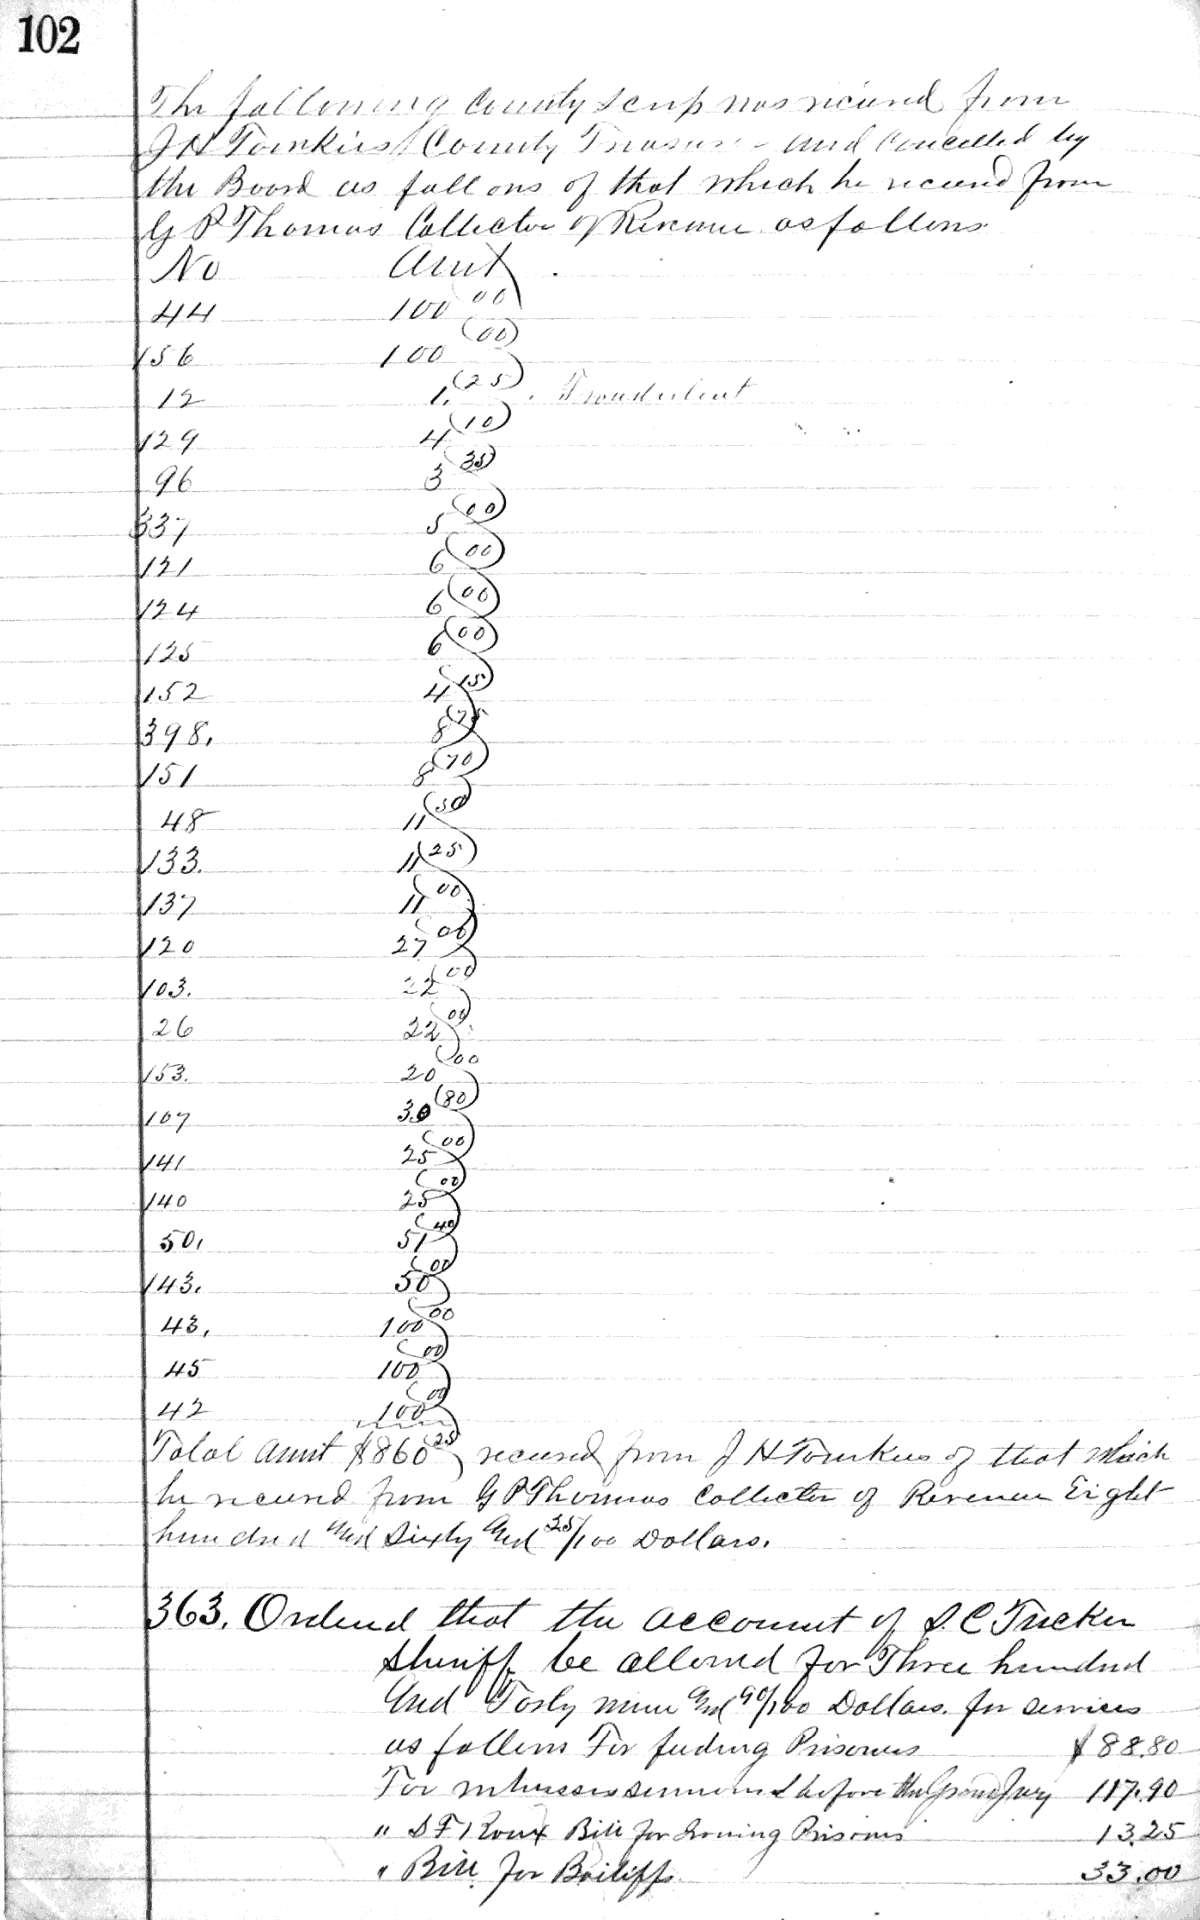 102
The following County Scrip was recieved from
J H Tomkies County Treasurer and Cancelled by
the Board as follows of that which he recieved from
G P Thomas Collector of Revenue as follows
No Amt
44 100 00
156 100 00
12 1. 25 Fraudulent
129 4 10
96 3 35
337 5 00
121 6 00
124 6 00
125 6 00
152 4 15
398. 8 75
151 8 70
48 11 50
133. 11 25
137 11 00
120 27 00
103. 22 00
26 22 00
153. 20 00
107 30 80
141 25 00
140 25 00
50, 51 40
143. 50 00
43, 100 00
45 100 00
42 100 00
Total Amt $860 25 recieved from J H Tomkies of that which
he recieved from G P Thomas Collector of Revenue Eight
hundred And Sixty And 25/100 Dollars.
363. Ordered that the account of S. C Tucker
Sheriff be allowed for Three hundred
And Forty nine And 90/100 Dollars. for services
as follows For feeding Prisoners $88.80
For witnesses summoned before the Grand Jury 117.90
" S F Bill for Ironing Prisoners 13.25
" Bill for Bailiffs 33.00